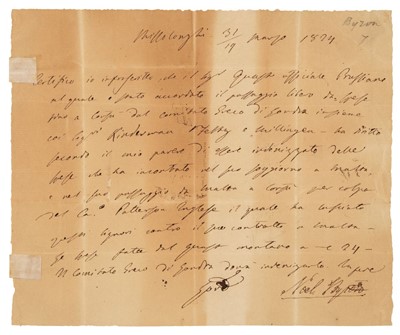 Byron
7
Missolonghi 31/19 Marzo 1824
Certifico io infrascritto che il Sigr Quass officiale Prussiano
al quale è stato accordato il passaggio libero da
fino a Corfù dal Comitato Greco di Londra insieme
coi Sigri Kinderman e Millingen - ha dritto
secondo il mio parere di essere indennizzato delle
spese che ha incontrato nel suo soggiorno a Malta
e nel suo passaggio da Malta a Corfù per colpa
del Capo Patterson Inglese il quale ha
questi Signori contro il suo contratto a Malta -
Le spese fatte dal Quass montano a - 24 -
Il Comitato Greco di Londra dovrà indennizzare
Noel Byron